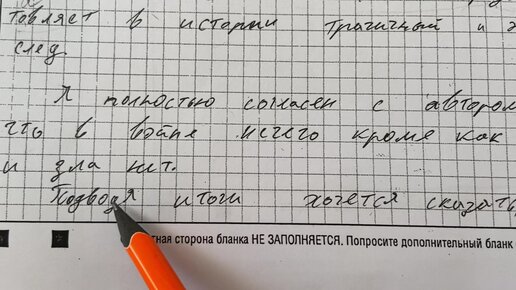 товляет в истории трагичный и
след.
Я полностью согласен с автором
что в войне нечего кроме как
и зла нет.
Подводя итоги хочется сказать,
тная сторона бланка НЕ ЗАПОЛНЯЕТСЯ. Попросите дополнительный бланк